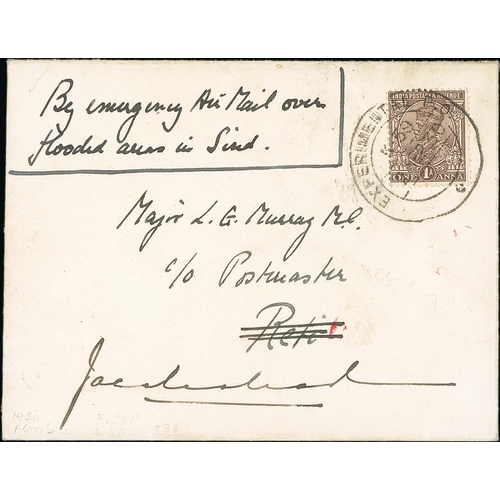 By emergency Air Mail over
flooded areas in Sind.
INDIA POSTAGE & REVENUE
1A
ONE ANNA
EXPERIMENTAL P.O.
Major L. G. Murray M.C.
c/o Postmaster
Reti
1930
Flood